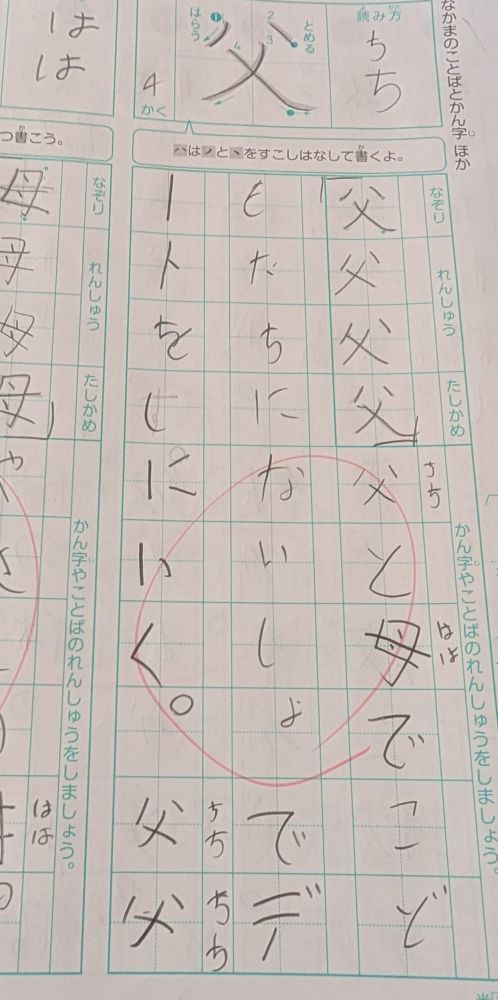 なかまのことばとかん字 ほか
読み方
ちち
父
とめる
はらう
4
かく
ハはノと丶をすこしはなして書くよ。
なぞり れんしゅう たしかめ
かん字やことばのれんしゅうをしましょう。
父父父父父と母でこど
はは
もだちにないしょでデ
ートをしにいく。父父
ちち
ちち
はは
つ書こう。
なぞり れんしゅう たしかめ
かん字やことばのれんしゅうをしましょう。
はは
母母母母